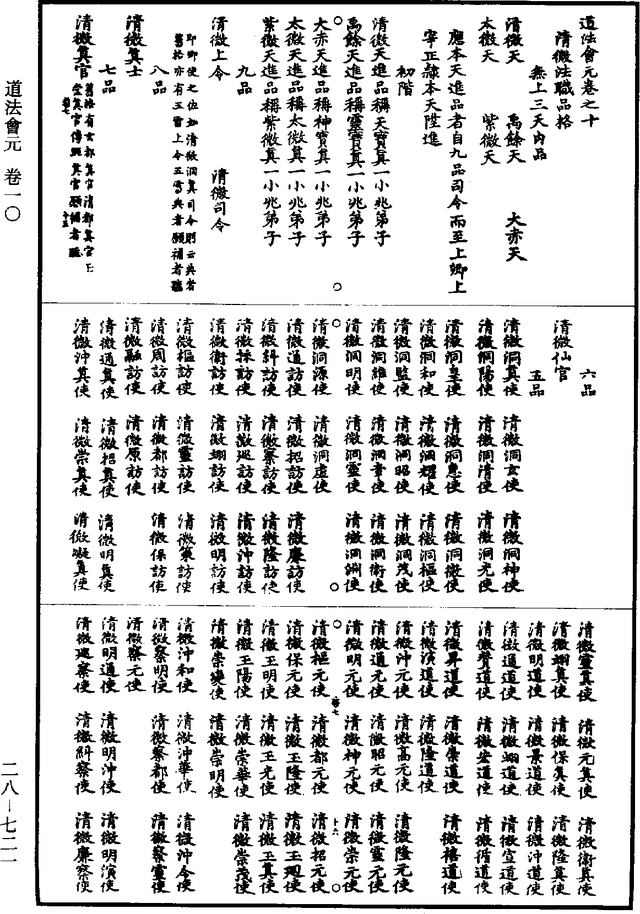 道法會元卷之十
清微法職品格
無上三天內品
清微天　禹餘天　大赤天
太微天　紫微天
應本天進品者自九品司令而至上卿上
宰正隸本天陞進
初階
清微天進品稱天寶真一小兆弟子
禹餘天進品稱靈寶真一小兆弟子
大赤天進品稱神寶真一小兆弟子
太微天進品稱太微真一小兆弟子
紫微天進品稱紫微真一小兆弟子
九品
清微上令　清微司令
即卿使之位如清微洞真司令則云兵者
舊格亦有五雷上令五雷兵者願補者聽
八品
清微真士
七品
清微真官
舊格有玄都真官清都真官玉
堂真官傳經真官願補者聽
六品
清微仙官
五品
清微洞真使　清微洞玄使　清微洞神使
清微洞陽使　清微洞清使　清微洞光使
清微洞皇使　清微洞惠使　清微洞微使
清微洞和使　清微洞耀使　清微洞樞使
清微洞監使　清微洞昭使　清微洞茂使
清微洞維使　清微洞章使　清微洞衛使
清微洞明使　清微洞靈使　清微洞淵使
清微洞源使　清微洞虛使
清微通訪使　清微招訪使　清微廉訪使
清微糾訪使　清微察訪使　清微隆訪使
清微採訪使　清微巡訪使　清微沖訪使
清微衛訪使　清微翊訪使　清微明訪使
清微樞訪使　清微靈訪使　清微策訪使
清微周訪使　清微都訪使　清微保訪使
清微融訪使　清微原訪使
清微通真使　清微招真使　清微明真使
清微沖真使　清微崇真使　清微凝真使
清微靈真使　清微元真使　清微衛真使
清微翊真使　清微保真使　清微隆真使
清微明道使　清微景道使　清微沖道使
清微通道使　清微翊道使　清微宣道使
清微贊道使　清微宏道使　清微循道使
清微昇道使　清微崇道使　清微禧道使
清微演道使　清微隆道使
清微沖元使　清微高元使　清微隆元使
清微通元使　清微昭元使　清微靈元使
清微明元使　清微神元使　清微崇元使
清微樞元使　清微都元使　清微招元使
清微保元使　清微玉隆使　清微玉翊使
清微玉明使　清微玉光使　清微玉真使
清微玉陽使　清微崇華使　清微崇茂使
清微崇變使　清微崇明使
清微沖和使　清微沖華使　清微沖令使
清微察明使　清微察都使　清微察靈使
清微察元使
清微明通使　清微明沖使　清微明演使
清微巡察使　清微糾察使　清微廉察使
道法會元　卷一〇
二八—七二一